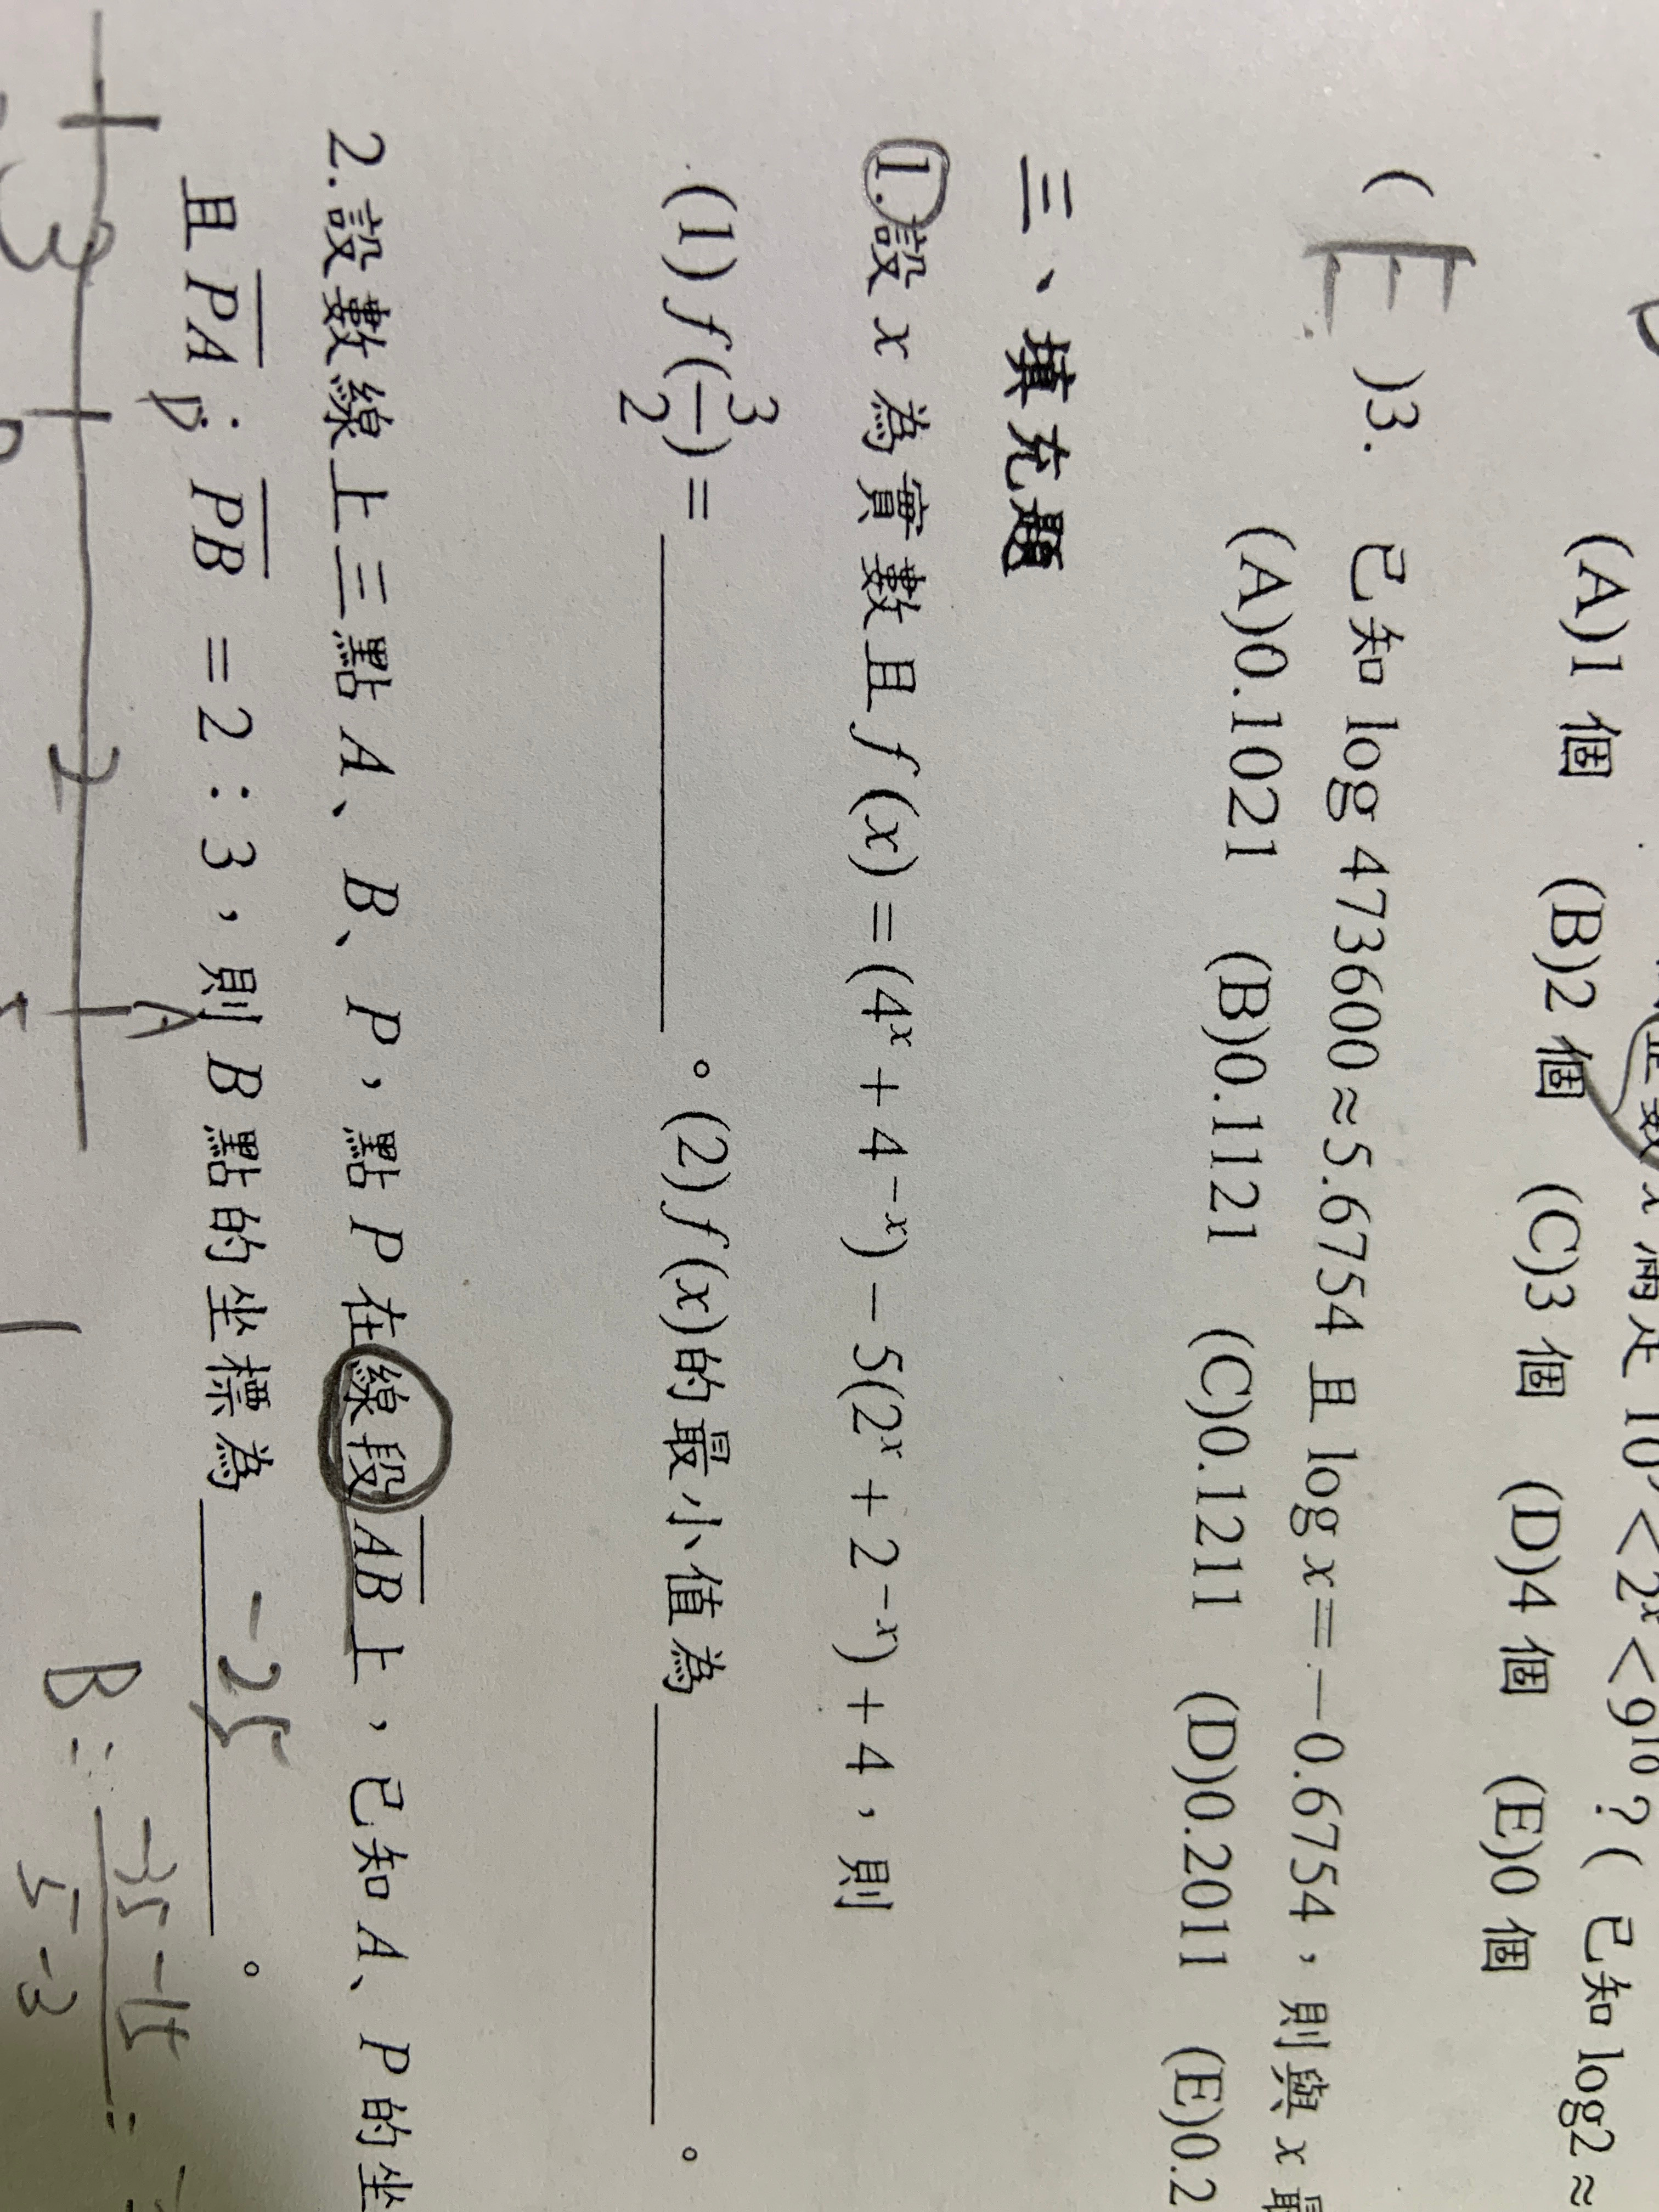 正數 x 滿足 10⁹ < 2ˣ < 9¹⁰？( 已知 log2 ≈
(A)1 個 (B)2 個 (C)3 個 (D)4 個 (E)0 個
( E )3. 已知 log 473600 ≈ 5.6754 且 log x = −0.6754，則與 x 最
(A)0.1021 (B)0.1121 (C)0.1211 (D)0.2011 (E)0.2
三、填充題
1.設 x 為實數且 f(x) = (4ˣ + 4⁻ˣ) − 5(2ˣ + 2⁻ˣ) + 4，則
(1) f(3/2) = ______。(2) f(x)的最小值為 ______。
2.設數線上三點 A、B、P，點 P 在線段 AB 上，已知 A、P 的坐
且 PA：PB = 2：3，則 B 點的坐標為 -25 。
A
2
B:
-35-15
5-3